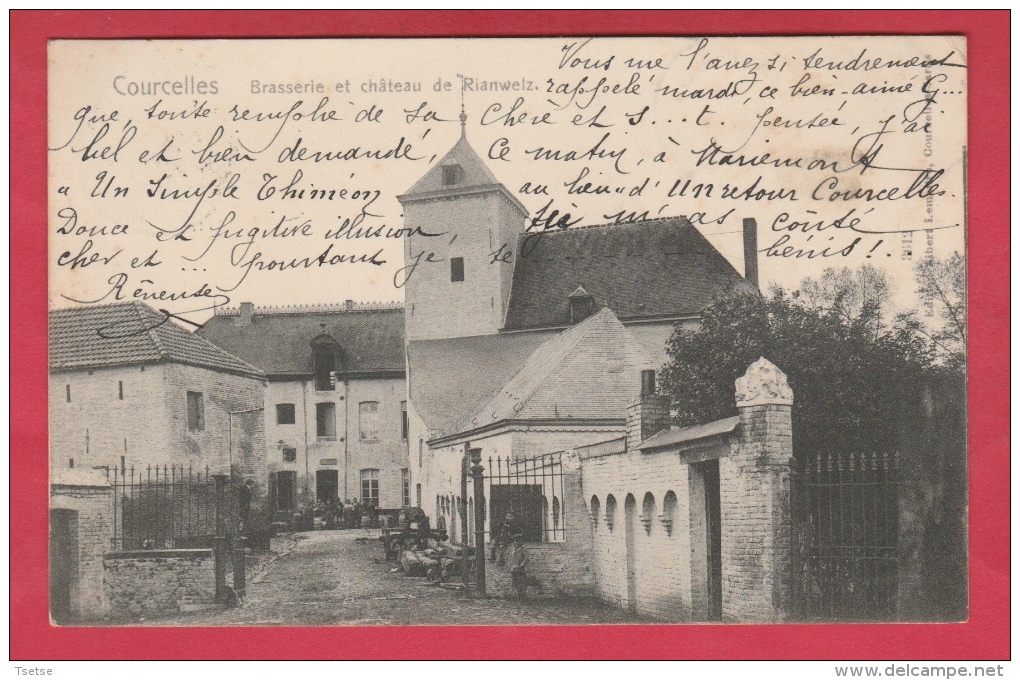 Courcelles Brasserie et château de Rianwelz.
Vous me l'avez si tendrement
rappelé mardi, ce bien-aimé G...
que, toute remplie de sa chère et s...t. pensée, j'ai
bel et bien demandé, ce matin, à Mariemont
"Un Simple Thiméon au lieu" d'Un retour Courcelles.
Douce et fugitive illusion, tu m'as coûté
cher et ... pourtant je te bénis!
Edit. Albert Lem Courcelles
Tsetse
www.delcampe.net